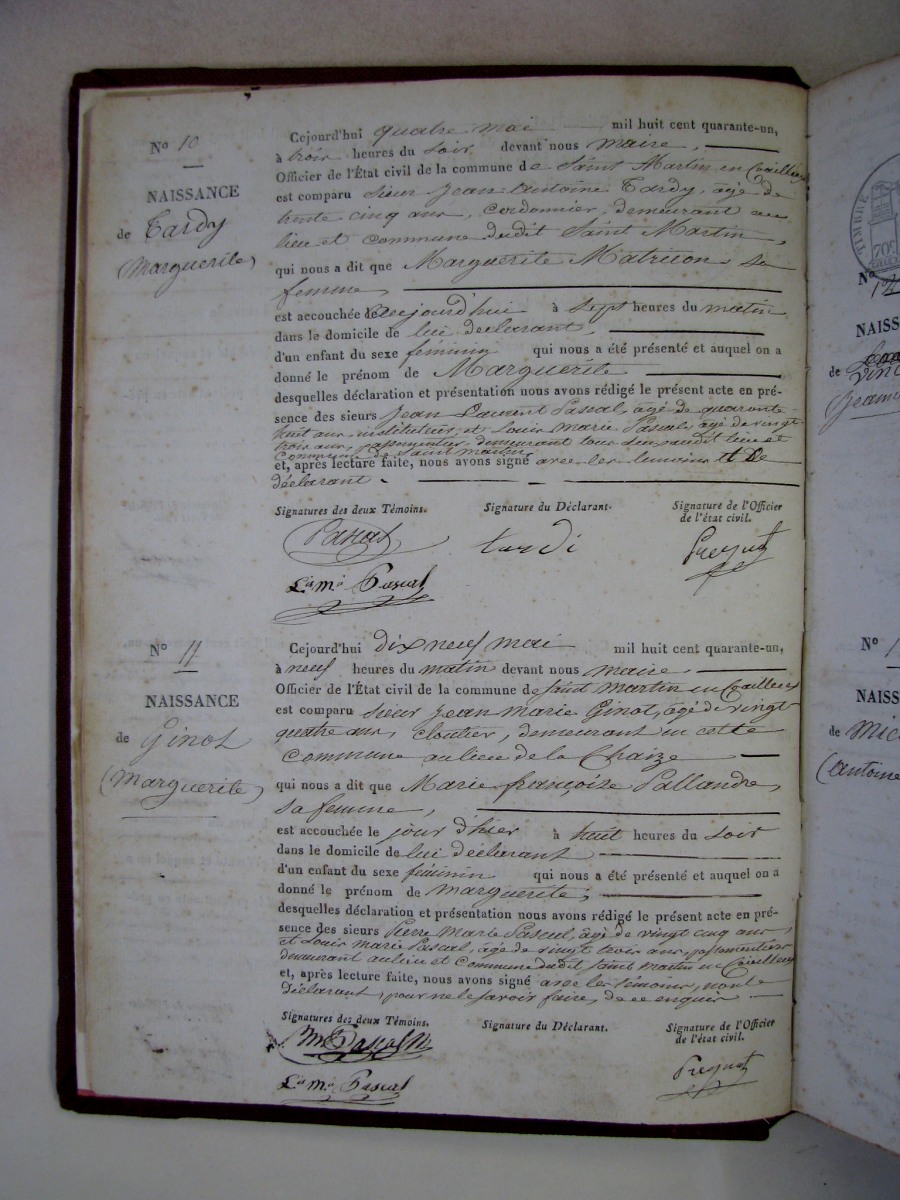 N° 10
NAISSANCE
de Tardy
(Marguerite)
Cejourd'hui quatre mai mil huit cent quarante-un,
à trois heures du soir devant nous maire,
Officier de l'État civil de la commune de Saint Martin en Coailleux
est comparu sieur Jean Antoine Tardy, âgé de
trente cinq ans, cordonnier, demeurant au
lieu et commune dudit Saint Martin,
qui nous a dit que Marguerite Matricon, sa
femme,
est accouchée cejourd'hui à sept heures du matin
dans le domicile de lui déclarant,
d'un enfant du sexe féminin qui nous a été présenté et auquel on a
donné le prénom de Marguerite
desquelles déclaration et présentation nous avons rédigé le présent acte en pré-
sence des sieurs Jean Laurent Pascal, âgé de quarante
huit ans, instituteur, et Louis Marie Pascal, âgé de vingt
trois ans, passementier, demeurant tous deux audit lieu et
Commune de Saint Martin,
et, après lecture faite, nous avons signé avec les témoins et le
déclarant.
Signatures des deux Témoins. Signature du Déclarant. Signature de l'Officier
de l'état civil.
Pascal tardi
Ls Mie Pascal
N° 11
NAISSANCE
de Ginot
(Marguerite)
Cejourd'hui dix neuf mai mil huit cent quarante-un,
à neuf heures du matin devant nous maire,
Officier de l'État civil de la commune de Saint Martin en Coailleux
est comparu sieur Jean Marie Ginot, âgé de vingt
quatre ans, cloutier, demeurant en cette
commune au lieu de la Chaize
qui nous a dit que Marie françoise Pallandre,
sa femme,
est accouchée le jour d'hier à huit heures du soir
dans le domicile de lui déclarant
d'un enfant du sexe féminin qui nous a été présenté et auquel on a
donné le prénom de Marguerite,
desquelles déclaration et présentation nous avons rédigé le présent acte en pré-
sence des sieurs Pierre Marie Pascal, âgé de vingt cinq ans,
et Louis Marie Pascal, âgé de vingt trois ans, passementiers
demeurant au lieu et Commune dudit Saint Martin en Coailleux
et, après lecture faite, nous avons signé avec les témoins, non le
déclarant, pour ne le savoir faire, de ce enquis
Signatures des deux Témoins. Signature du Déclarant. Signature de l'Officier
de l'état civil.
Pascal
Ls Mie Pascal
TIMBRE
N°
NAISS
de
N° 1
NAISS
de Mic
(Antoine